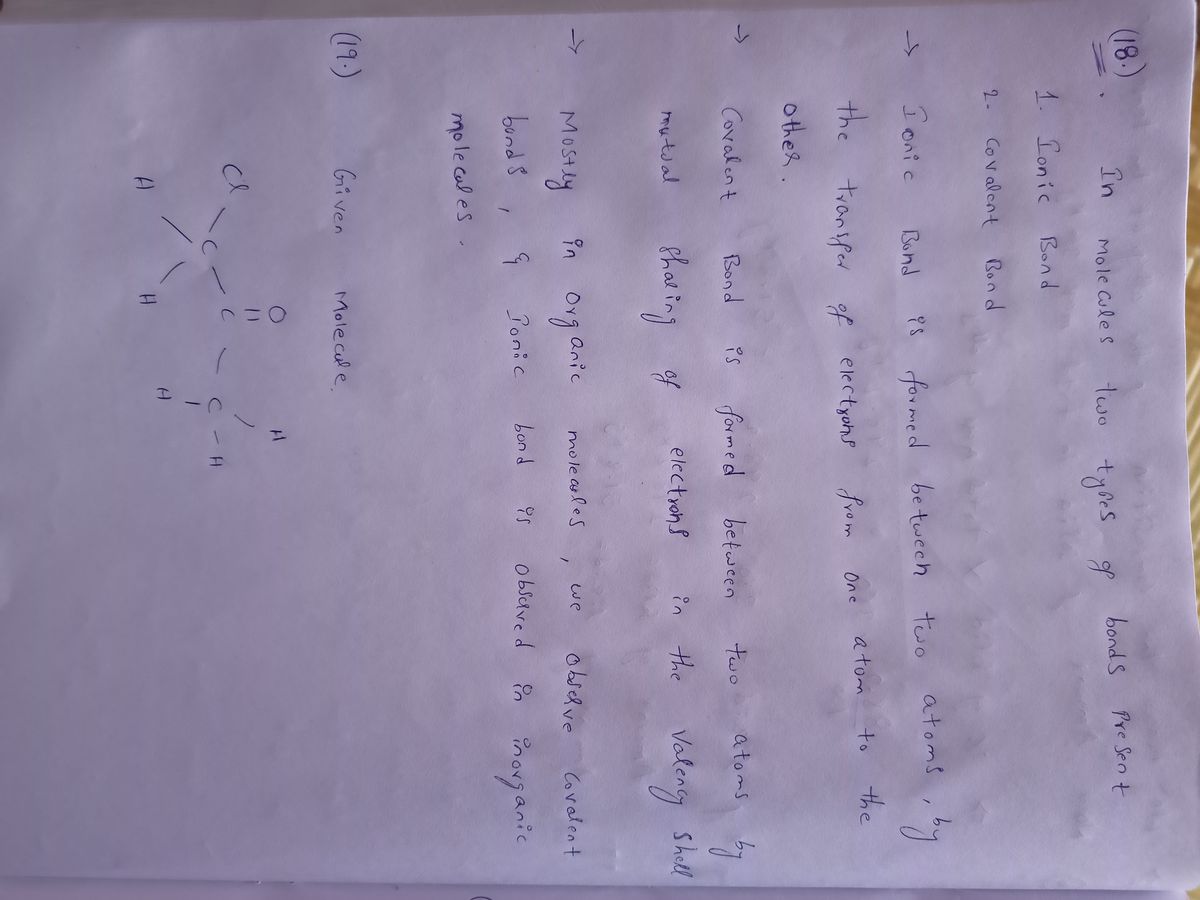 (18.). In molecules two types of bonds present
1. Ionic Bond
2. Covalent Bond
→ Ionic Bond is formed between two atoms, by
the transfer of electrons from one atom to the
other.
→ Covalent Bond is formed between two atoms by
mutual sharing of electrons in the Valency shell
→ Mostly in organic molecules, we observe covalent
bonds, & Ionic bond is observed in inorganic
molecules.
(19.) Given Molecule.
O H
Cl - C - C - C - H
H H H